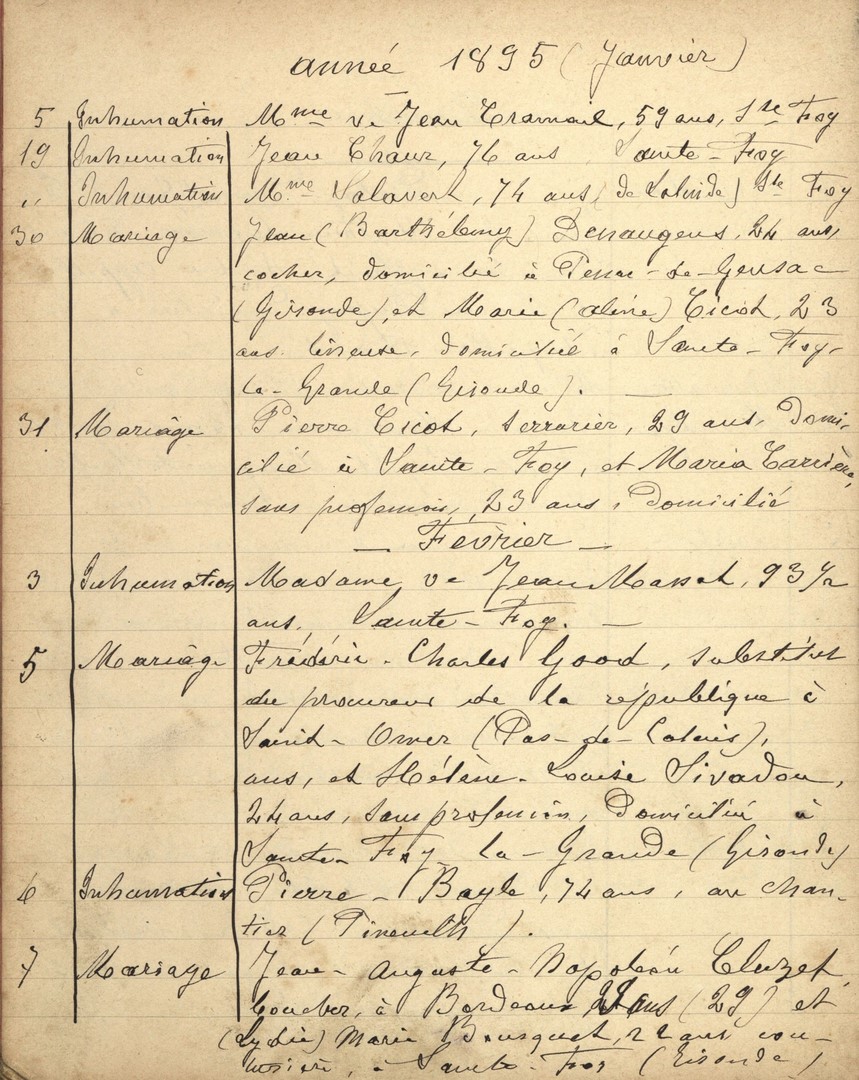 année 1895 (Janvier)
5 Inhumation Mme ve Jean Tramail, 59 ans, Ste Foy
19 Inhumation Jean Chaux, 76 ans Sainte-Foy
" Inhumation Mme Salavert, 74 ans (de Lalinde) Ste Foy
30 Mariage Jean (Barthélemy) 24 ans,
cocher, domicilié à Pessac-de-Gensac
(Gironde), et Marie (aline) Ticot, 23
ans domicilié à Sainte-Foy-
la-Grande (Gironde).
31 Mariage Pierre Ticot, serrurier, 29 ans, Domi-
cilié à Sainte-Foy, et Maria Carrière,
sans profession, 23 ans, Domicilié
Février
3 Inhumation Madame ve Jean Massat, 93 1/2
ans, Sainte-Foy.
5 Mariage Frédéric-Charles Good, substitut
du procureur de la république à
Saint-Omer (Pas-de-Calais),
ans, et Hélène-Louise Sivadon,
24 ans, sans profession, Domicilié à
Sainte-Foy-la-Grande (Gironde)
6 Inhumation Pierre-Bayle, 74 ans, au chan-
tier (Pineuilh).
7 Mariage Jean-Auguste-Napoléon Cluzet,
boucher, à Bordeaux ans (29) et
(Lydie) Marie Bousquet, 22 ans cou-
à Sainte-Foy (Gironde)